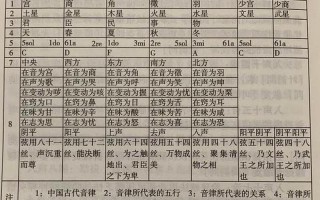 1 宫 商 角 徵 羽 少宫 少商
2 土星 金星 木星 火星 水星 文星 武星
3 君 臣 民 事 物
4 天 春 夏 秋 冬
5 5sol 6la 1do 2re 3mi 5sol 6la
6 C D F G A C D
7 中央 西方 东方 南方 北方
8
在音为宫 在音为商 在音为角 在音为徵 在音为羽
在声为歌 在声为哭 在声为呼 在声为笑 在声为呻
在变动为哕 在变动为咳 在变动为握 在变动为忧 在变动为栗
在窍为口 在窍为鼻 在窍为目 在窍为舌 在窍为耳
在味为甘 在味为辛 在味为酸 在味为苦 在味为咸
在志为思 在志为忧 在志为怒 在志为喜 在志为恐
阴平 阳平 上声 去声 入声 阳平阴平 阳平阴平
弦用八十一丝,声沉重而尊
弦用七十二丝,能决断
弦用六十四丝,为之触地出、君臣之下为卑
弦用五十四丝,万物成美
弦用四十八丝,聚集清物之相
弦用四十五丝,乃文王之所加也
弦用四十丝,乃武王之所加也
注 1:中国古代音律 2:音律所代表的五行 3:音律所代表的关系 4:音律所